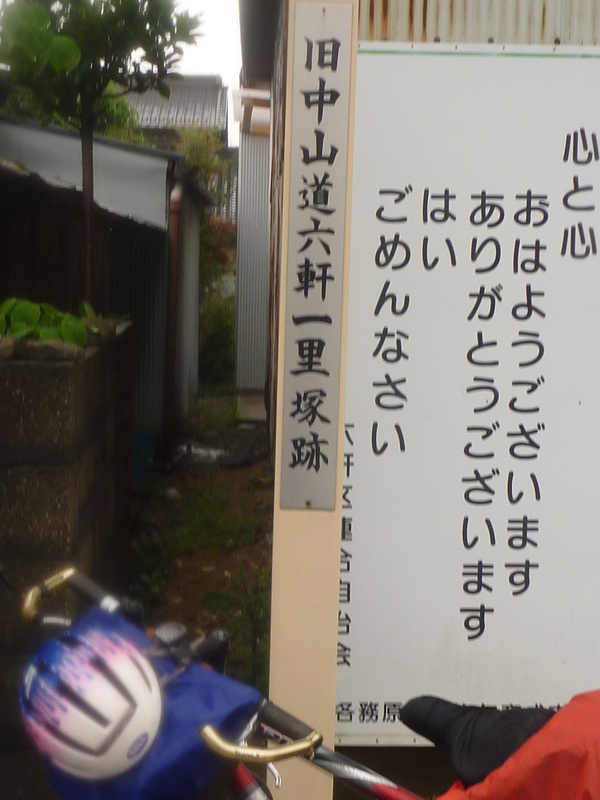 旧中山道六軒一里塚跡
心と心
おはようございます
ありがとうございます
はい
ごめんなさい
六軒区連合自治会
各務原